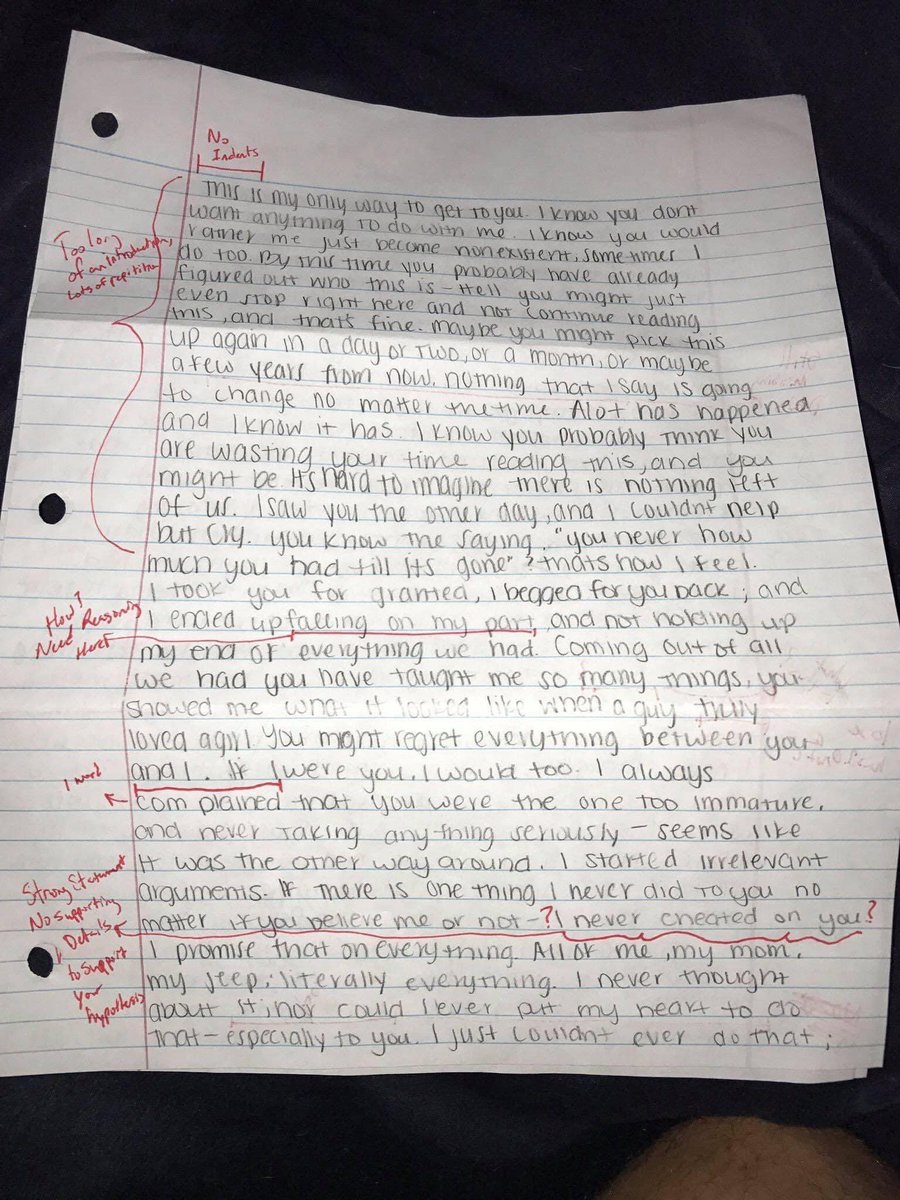 No
Indents
This is my only way to get to you. I know you dont
want anything to do with me. I know you would
rather me just become nonexistent, sometimes I
do too. By this time you probably have already
figured out who this is - Hell you might just
even stop right here and not continue reading
this, and that's fine. maybe you might pick this
up again in a day or two, or a month, or maybe
a few years from now. nothing that I say is going
to change no matter the time. Alot has happened,
and I know it has. I know you probably think you
are wasting your time reading this, and you
might be Its hard to imagine there is nothing left
of us. I saw you the other day, and I couldnt help
but cry. you know the saying, "you never how
much you had till its gone"? thats how I feel.
I took you for granted, I begged for you back; and
I ended up falling on my part, and not holding up
my end of everything we had. Coming out of all
we had you have taught me so many things, you
showed me what it looked like when a guy truly
loved a girl You might regret everything between you
and I. If I were you, I would too. I always
complained that you were the one too immature,
and never taking anything seriously - seems like
It was the other way around. I started irrelevant
arguments. If there is one thing I never did to you no
matter if you believe me or not -? I never cheated on you?
I promise that on everything. All of me, my mom,
my jeep; literally everything. I never thought
about it, nor could I ever put my heart to do
that - especially to you. I just couldnt ever do that;
Too long
of an introduction,
Lots of repitition
How?
Need Reasoning
Here
1 word
Strong Statement
No supporting
Details
to support
your
hypothesis